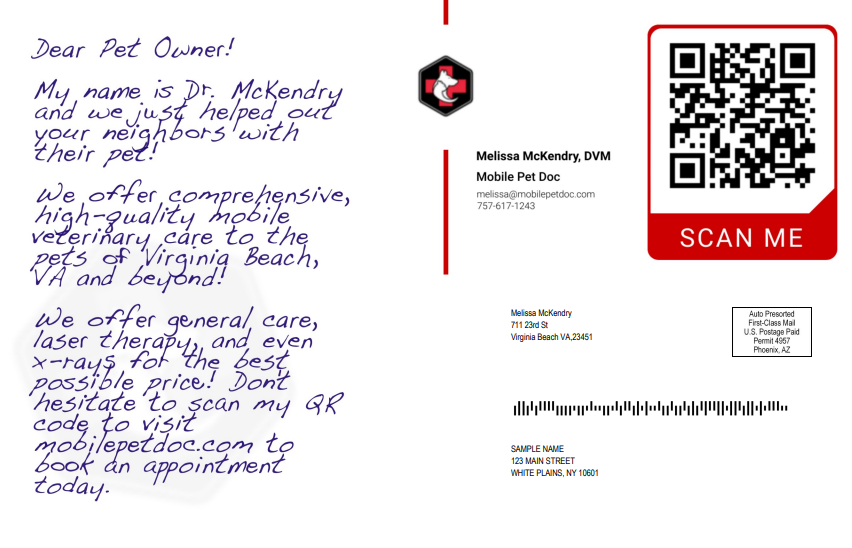 Dear Pet Owner!
My name is Dr. McKendry
and we just helped out
your neighbors with
their pet!
We offer comprehensive,
high-quality mobile
veterinary care to the
pets of Virginia Beach,
VA and beyond!
We offer general care,
laser therapy, and even
x-rays for the best
possible price! Don't
hesitate to scan my QR
code to visit
mobilepetdoc.com to
book an appointment
today.
Melissa McKendry, DVM
Mobile Pet Doc
melissa@mobilepetdoc.com
757-617-1243
SCAN ME
Melissa McKendry
711 23rd St
Virginia Beach VA,23451
Auto Presorted
First-Class Mail
U.S. Postage Paid
Permit 4957
Phoenix, AZ
SAMPLE NAME
123 MAIN STREET
WHITE PLAINS, NY 10601